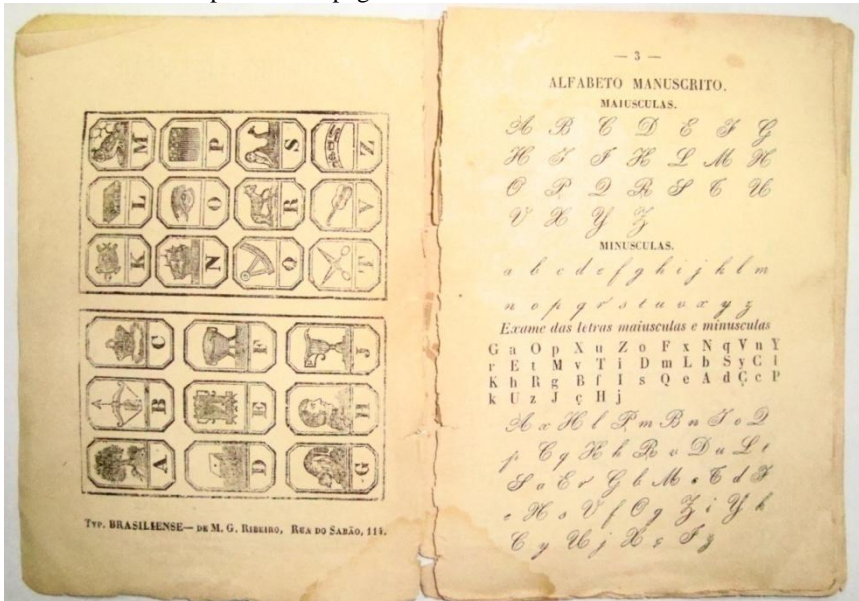 A B C
D E F
G H J
K L M
N O P
Q R S
T V Z
Typ. BRASILIENSE— DE M. G. RIBEIRO, RUA DO SABÃO, 114.
— 3 —
ALFABETO MANUSCRITO.
MAIUSCULAS.
A B C D E F G
H I J K L M N
O P Q R S T U
V X Y Z
MINUSCULAS.
a b c d e f g h i j k l m
n o p q r s t u v x y z
Exame das letras maiusculas e minusculas
G a O p X u Z o F x N q V n Y
r E t M v T i D m L b S y C l
K h R g B f I s Q e A d Ç c P
k U z J ç H j
A x H l P m B n I o Q
p C q K h R v D u L t
S a E r G b M c T d J
e N s V f O g Z i Y k
C y U j X ç F z